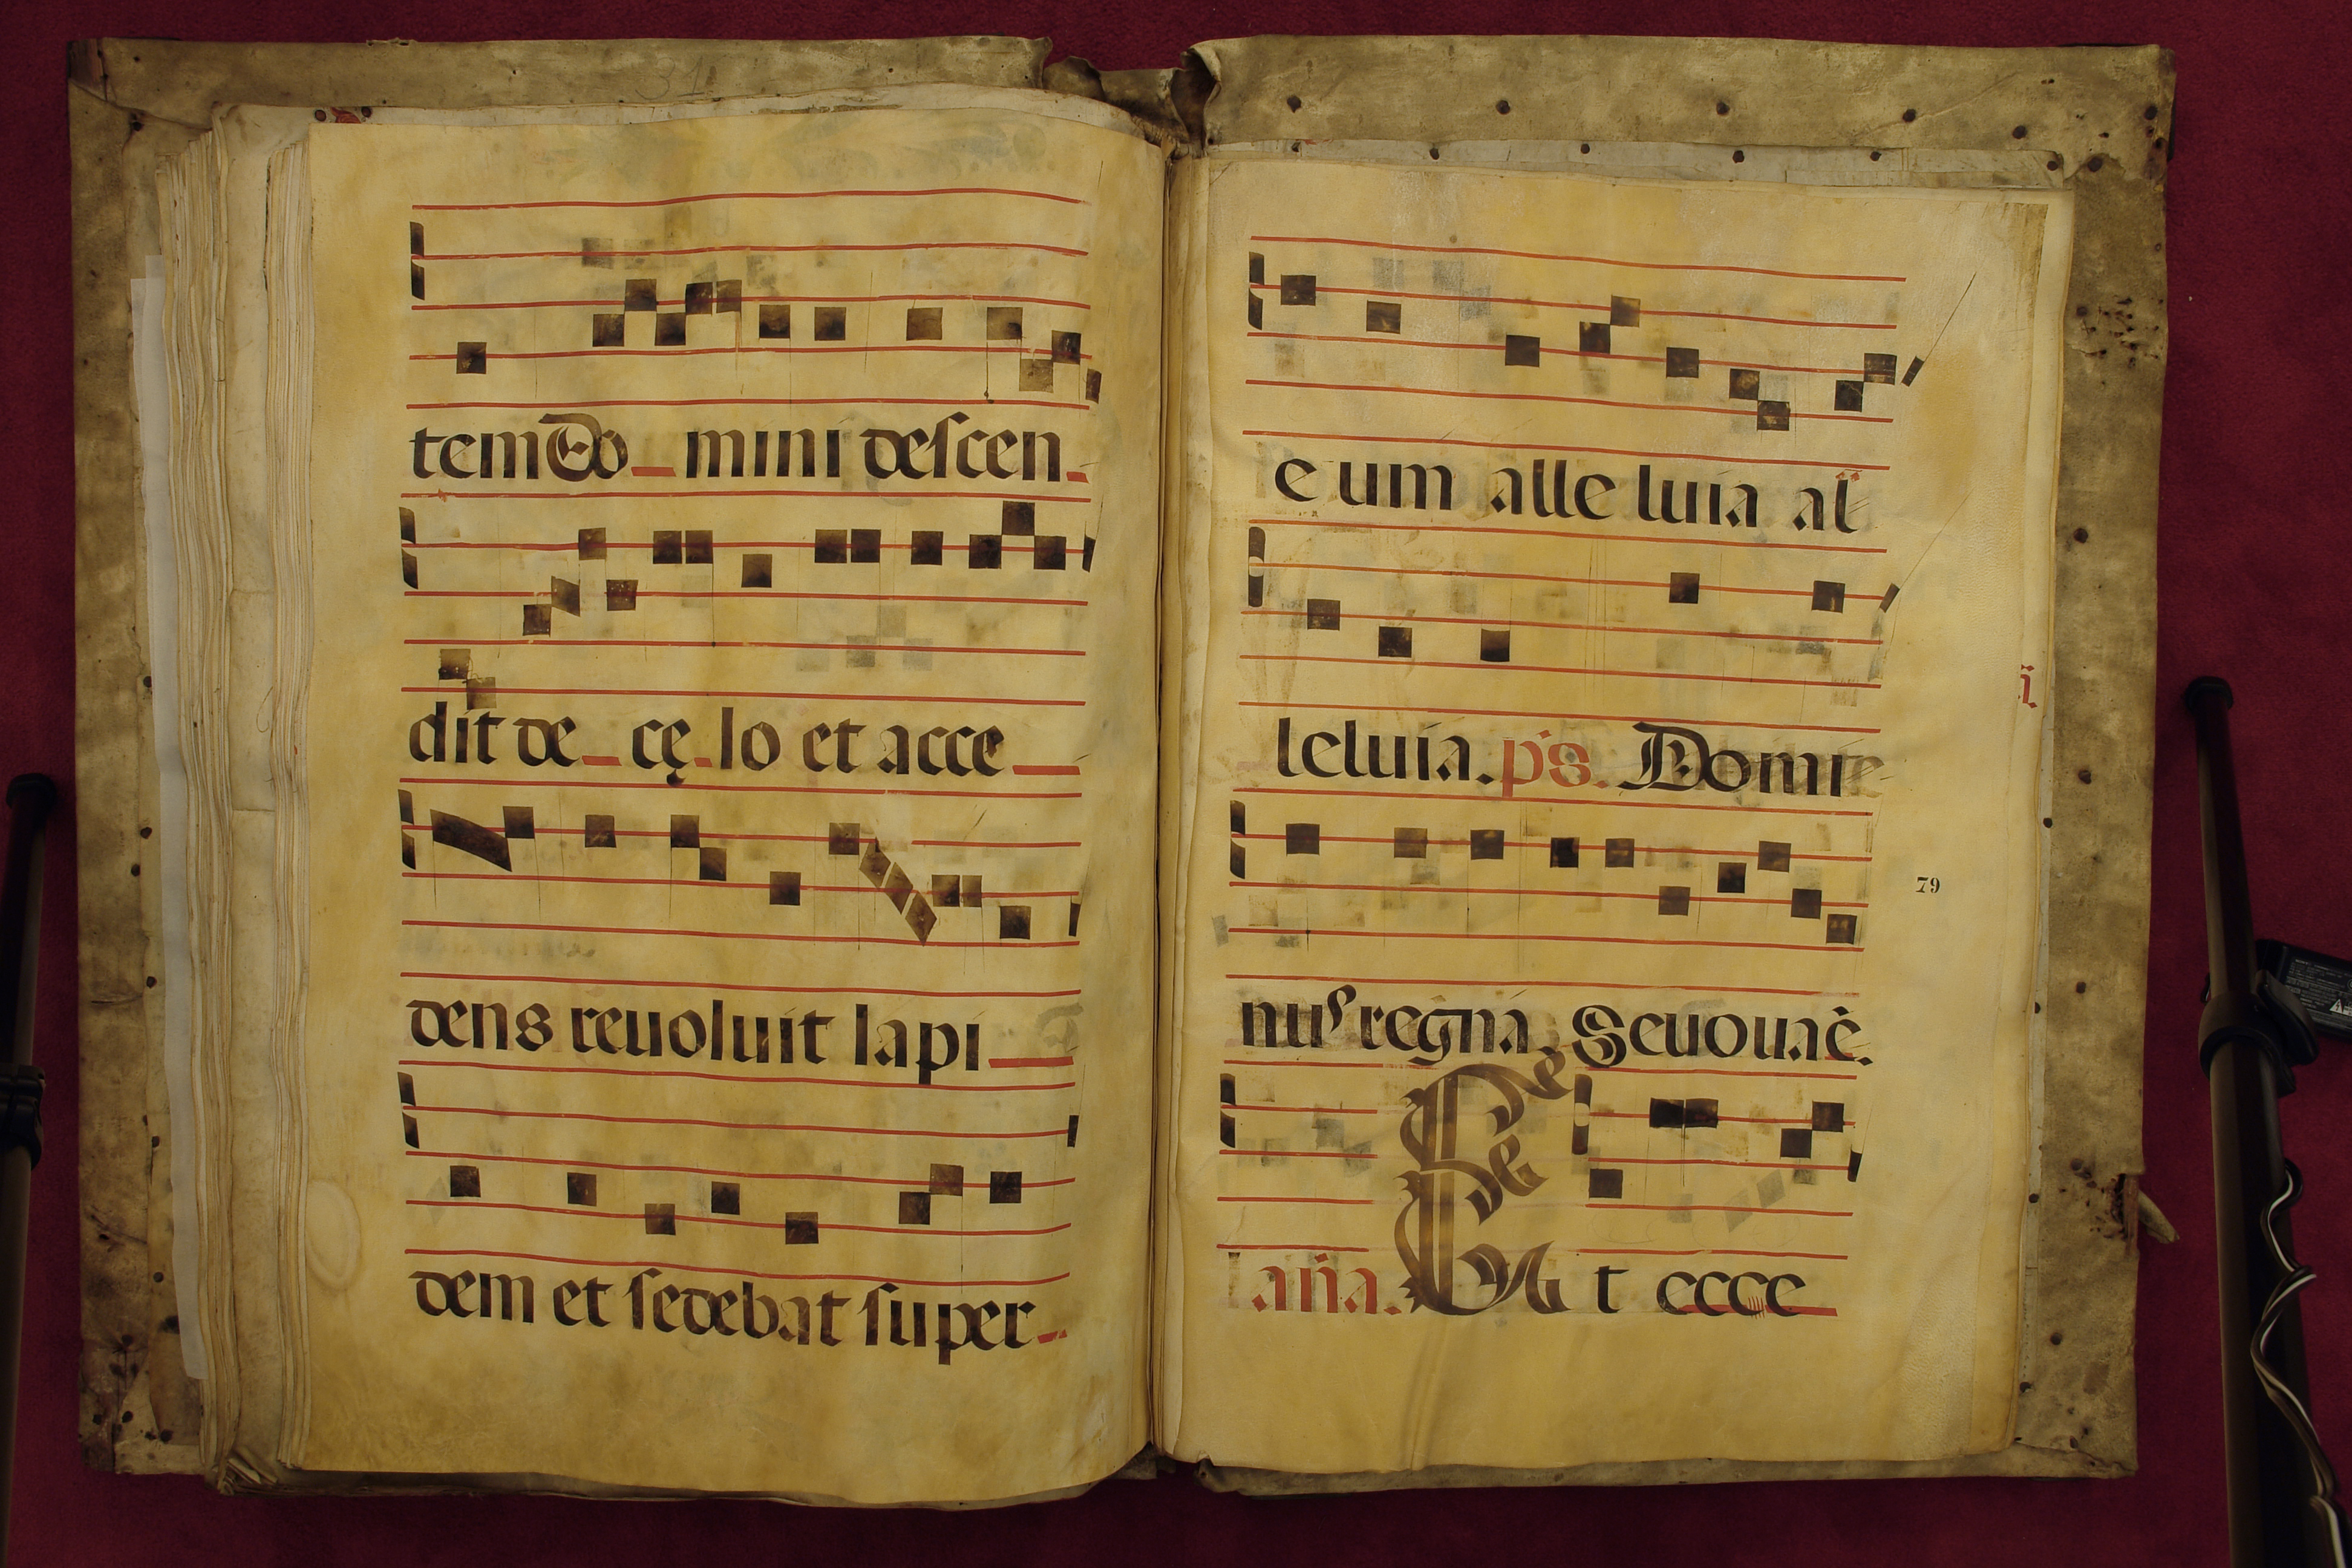 31
tem Do mini descen
dit de cę lo et acce
dens reuoluit lapi
dem et sedebat super
e um alle luia al
leluia. ps. Domi
nus regna. Seuouae.
aña. Et ecce
i.
79